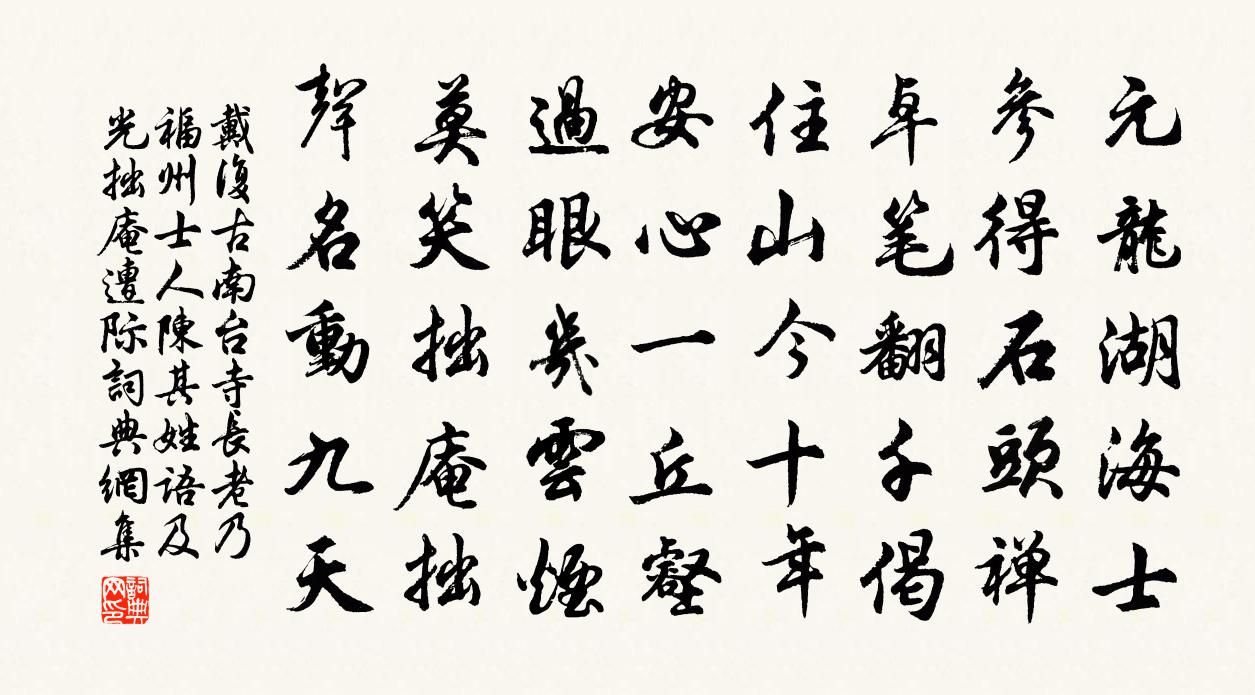 元龍湖海士
參得石頭禅
卓笔翻千偈
住山今十年
安心一丘壑
過眼幾雲煙
莫笑拙庵拙
聲名動九天
戴復古南台寺長老乃
福州士人陳其姓語及
光拙庵遭际詞典網集
詞典網印